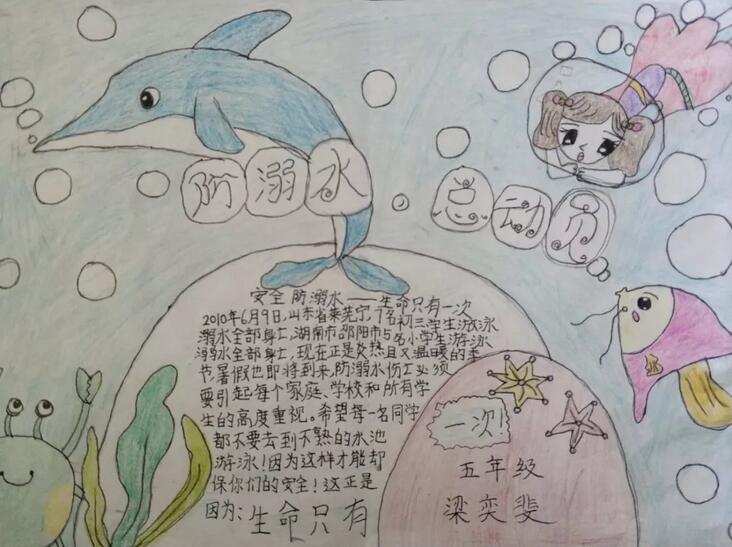 防溺水
总动员
安全防溺水——生命只有一次
2010年6月9日,山东省莱芜市,7名初三学生游泳
溺水全部身亡,湖南市邵阳市5名小学生游泳
溺水全部身亡,现在正是炎热且又温暖的季
节,暑假也即将到来,防溺水伤工必须
要引起每个家庭、学校和所有学
生的高度重视。希望每一名同学
都不要去到不熟的水池
游泳!因为这样才能却
保你们的安全!这正是
因为:生命只有
一次!
五年级
梁奕斐